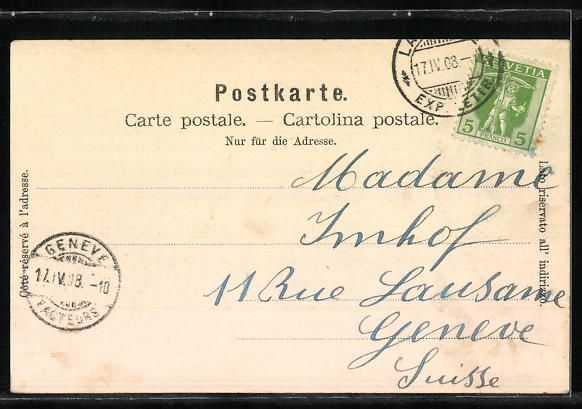 17.IV.08.-
EXP. LETTR.
HELVETIA
5 FRANCO 5
Postkarte.
Carte postale. — Cartolina postale.
Nur für die Adresse.
Côté réservé à l'adresse.
Lato riservato all' indirizzo.
Madame
Imhof
11 Rue Lausanne
Geneve
Suisse
GENEVE
17.IV.08.-10
FACTEURS